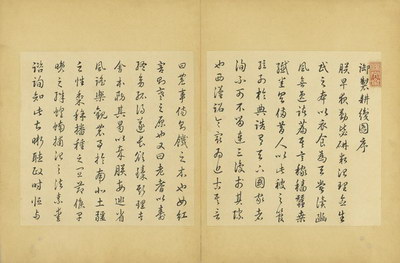 御製耕織圖序
朕早夜勤毖研求治理念生
民之本以衣食為天嘗讀豳
風無逸諸篇其言稼穡蠶桑
纖悉具備昔人以此被之管
弦列於典誥有天下國家者
洵不可不留連三復於其際
也西漢詔令最為近古其言
曰農事傷則飢之本也女紅
害則寒之原也又曰老耆以壽
終幼孤得遂長欲臻斯理者
舍本務其曷以哉朕每巡省
風謠樂觀農事於南北土疆
之性黍稌播種之宜節候早
晚之殊蝗蝻捕治之法素愛
諮詢知此甚晰聽政時恒與